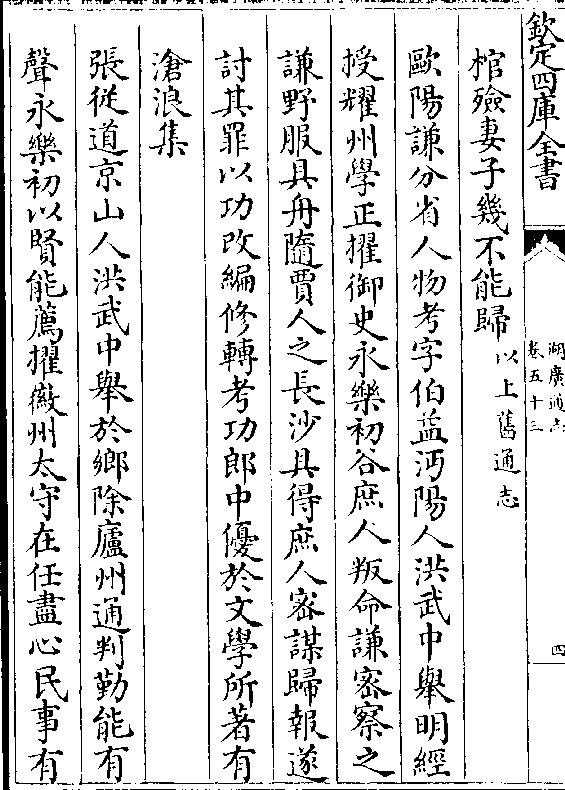 欽定四庫全書
湖廣通志
卷五十三
四
棺殮妻子幾不能歸以上舊通志
歐陽謙分省人物考字伯益沔陽人洪武中舉明經
授耀州學正擢御史永樂初谷庶人叛命謙密察之
謙野服具舟隨賈人之長沙具得庶人密謀歸報遂
討其罪以功改編修轉考功郎中優於文學所著有
滄浪集
張從道京山人洪武中舉於鄉除廬州通判勤能有
聲永樂初以賢能薦擢徽州太守在任盡心民事有